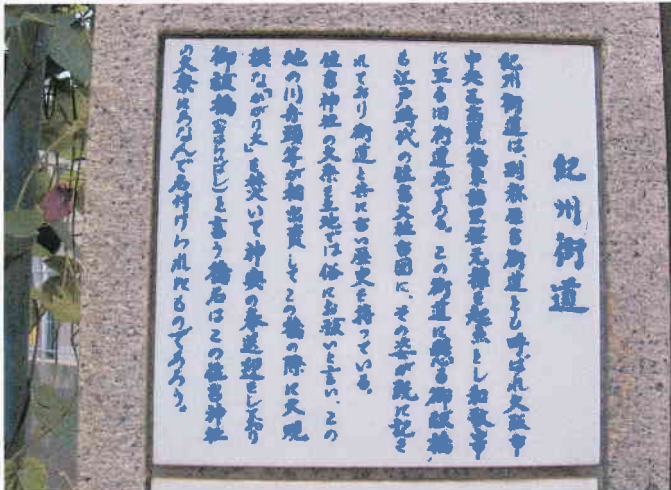 紀州街道
紀州街道は、別称住吉街道とも呼ばれ大阪市
中央区高麗橋東詰里程元標を起点とし和歌山市
に至る旧街道である。この街道に懸る御祓橋
も江戸時代の住吉大社古図に、その姿が既に記さ
れており街道と共に古い歴史を持っている。
住吉神社の大祭を土地では俗にお祓いと言い、この
地の川舟頭等が相出資してこの橋の際に大規
模な「かがり火」を焚いて神輿の奉迎をしており
御祓橋(おはらいばし)と言う橋名はこの住吉神社
の大祭にちなんで名付けられたものであろう。